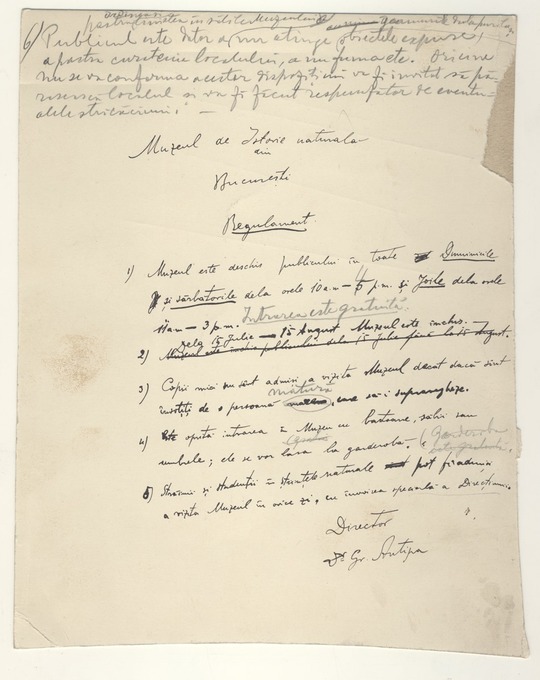 6) Publicul este dator a nu atinge obiectele expuse,
a păstra curățenia localului, a nu fuma etc. Oricine
nu se va conforma acestor dispozițiuni va fi invitat să pă-
răsească localul și va fi făcut responsabil de eventu-
alele stricăciuni. —
Muzeul de Istorie naturala
din
București
Regulament.
1) Muzeul este deschis publicului în toate Duminicile
și sărbătorile dela orele 10 am – 5 p.m. și Joile dela orele
11 am – 3 p.m. Intrarea este gratuită.
dela 15 Julie — 15 August Muzeul este închis. —
2) Muzeul este închis publicului dela 15 Julie până la 15 August.
3) Copii mici nu sânt admiși a vizita Muzeul decât dacă sînt
matură
însoțiți de o persoană care să-i supravegheze.
4) Este oprită intrarea în Muzeu cu bastoane, săbii sau
umbrele; ele se vor lăsa la garderobă. (Garderoba
este gratuită.
5) Străinii și studenții în științele naturale pot fi admiși
a vizita Muzeul în orice zi, cu învoirea specială a Direcțiunii.
Director
Dr Gr. Antipa